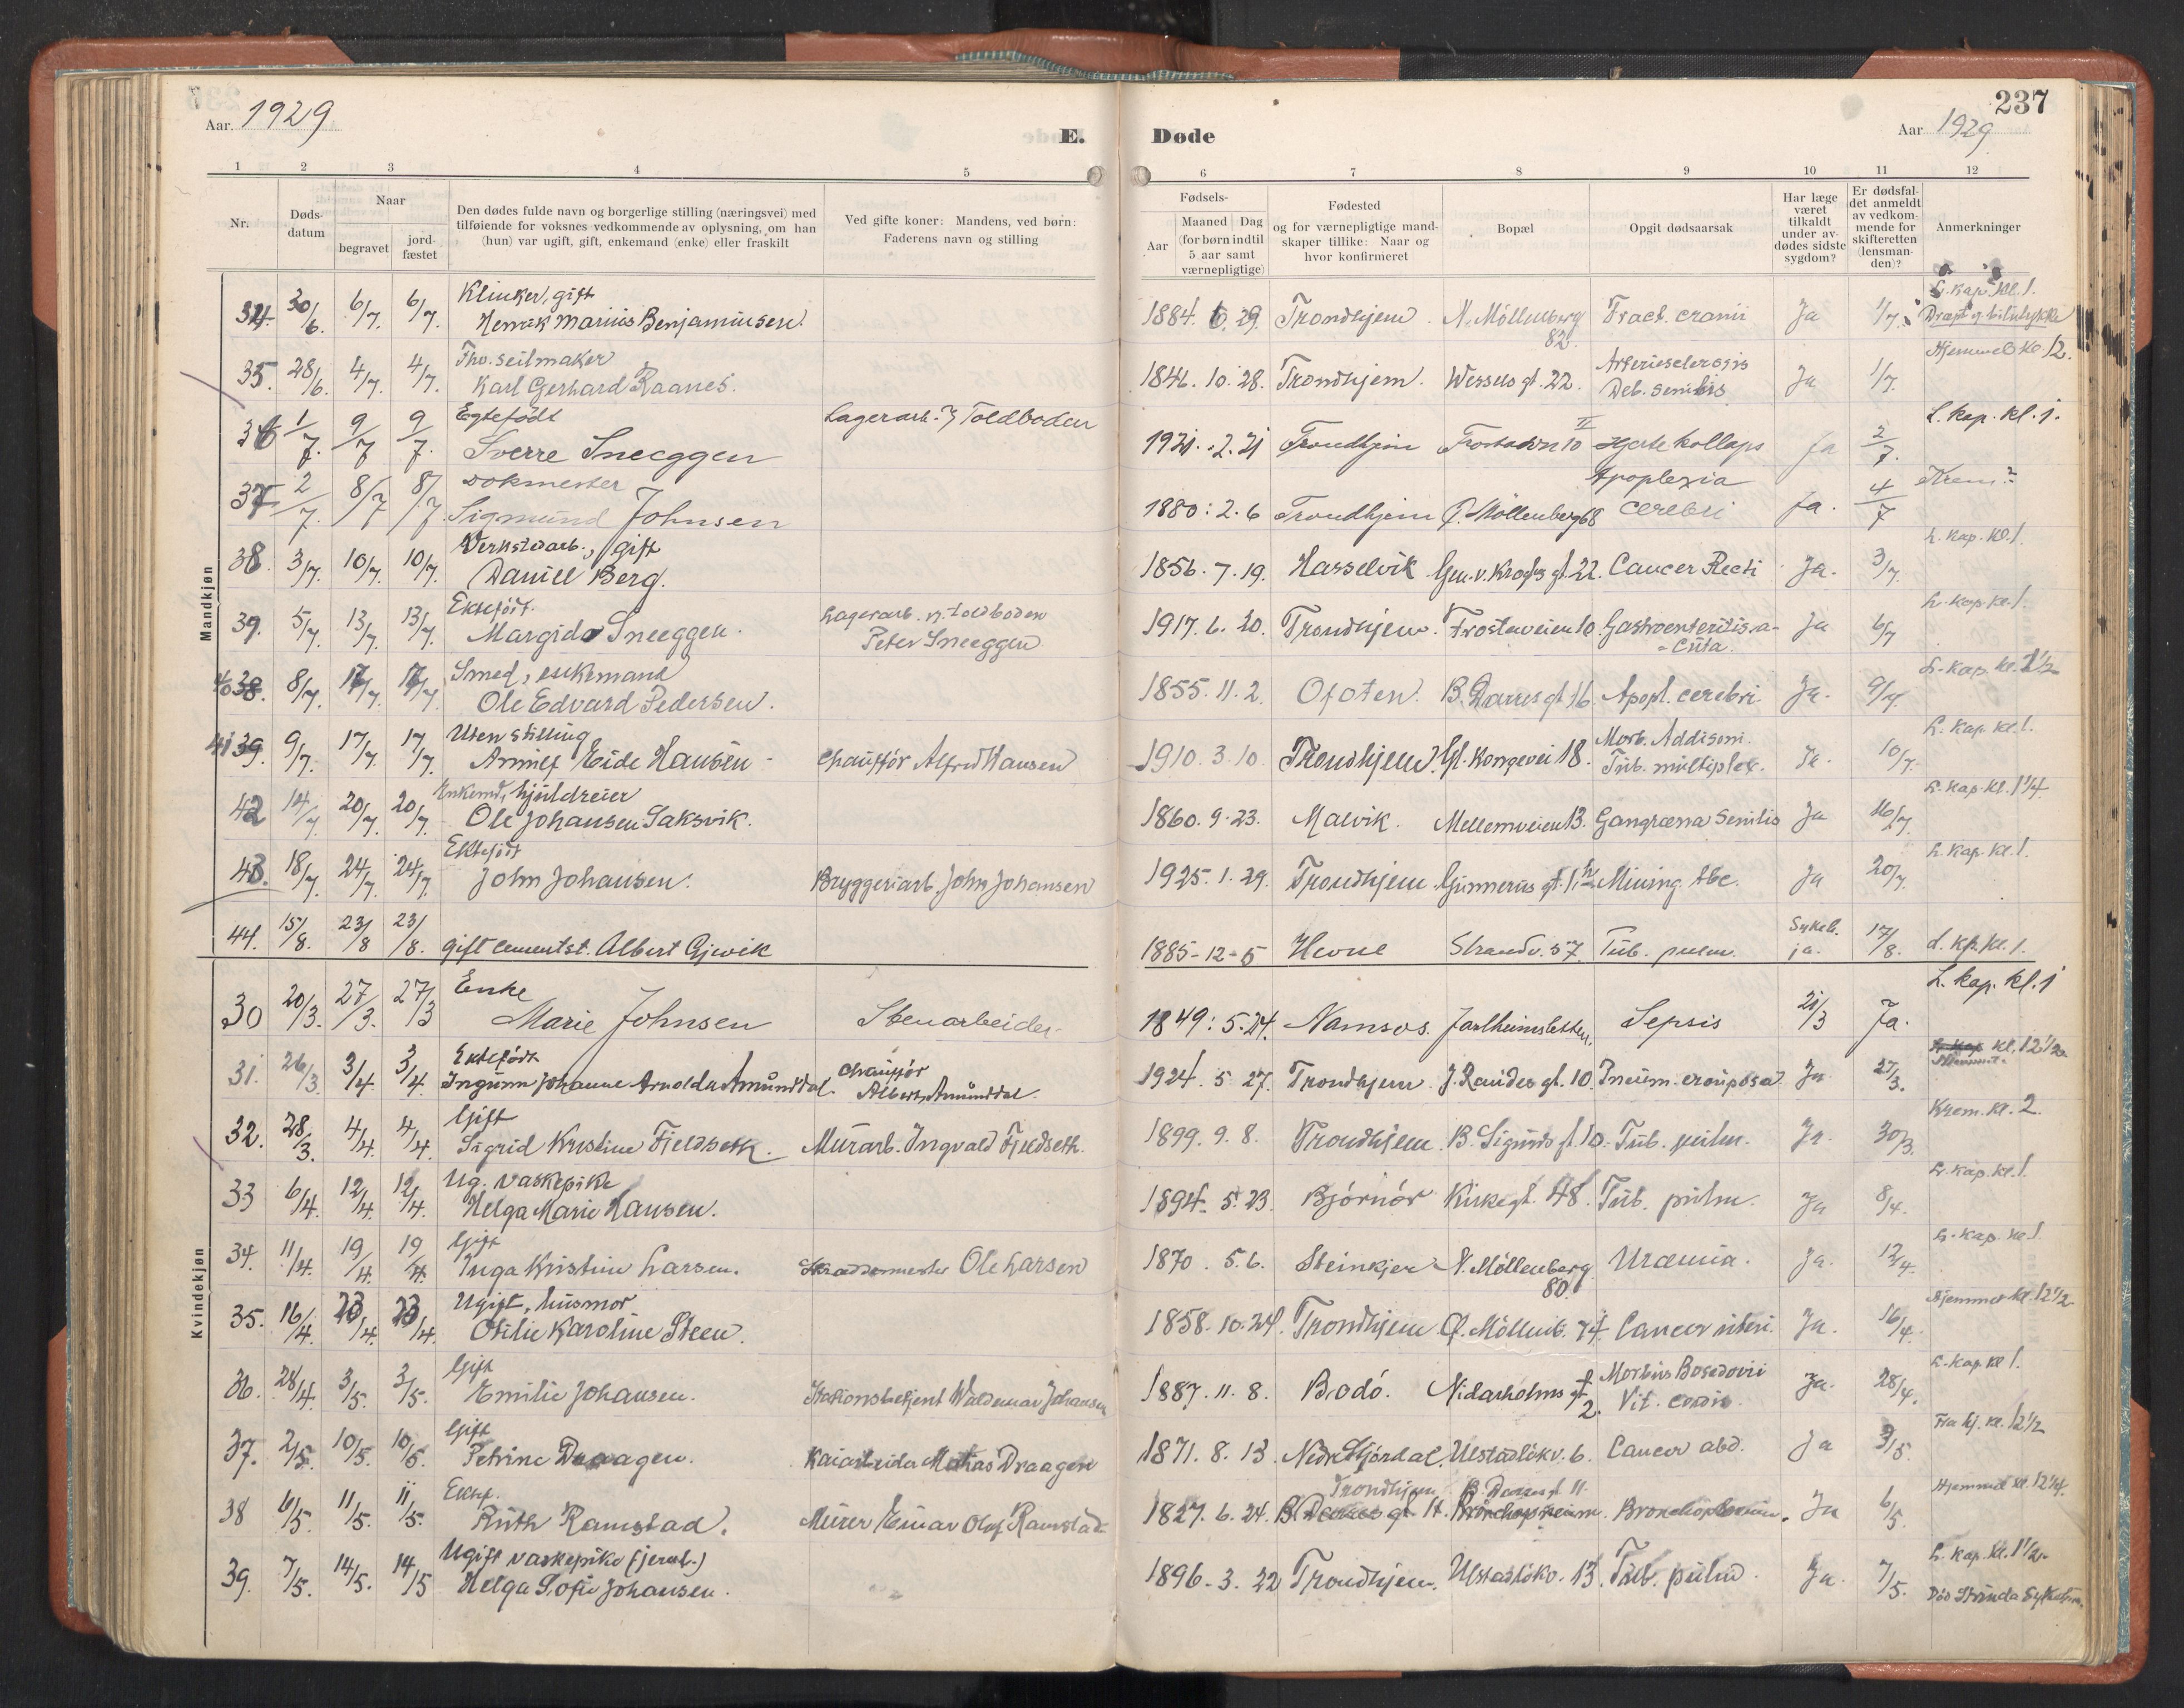 237
Aar 1929
E.
Døde
Aar 1929
1 2 3 4 5 6 7 8 9 10 11 12
Nr.
Døds-
datum
Naar
begravet
jord-
fæstet
Den dødes fulde navn og borgerlige stilling (næringsvei) med
tilføiende for voksnes vedkommende av oplysning, om han
(hun) var ugift, gift, enkemand (enke) eller fraskilt
Ved gifte koner: Mandens, ved børn:
Faderens navn og stilling
Fødsels-
Aar
Maaned Dag
(for børn indtil
5 aar samt
værnepligtige)
Fødested
og for værnepligtige mand-
skaper tillike: Naar og
hvor konfirmeret
Bopæl
Opgit dødsaarsak
Har læge
været
tilkaldt
under av-
dødes sidste
sygdom?
Er dødsfal-
det anmeldt
av vedkom-
mende for
skifteretten
(lensman-
den)?
Anmerkninger
Mandkjøn
Klinker, gift L. kap. kl. 1.
34. 30/6. 6/7. 6/7. Henrik Marius Benjaminsen. 1884. 6. 29. Trondhjem. N. Möllenberg Fract. cranii Ja 1/7. Dræpt
82.
Fho. seilmaker Arteriesclerosis Hjemmet kl 12.
35. 28/6. 4/7. 4/7. Karl Gerhard Raanes. 1846. 10. 28. Trondhjem. Wessels gt. 22. Deb. senilis Ja 1/7.
Egtefödt Lagerarb. Toldboden II L. kap. kl. 1.
36 1/7. 9/7 9/7. Sverre Sneeggen 1921. 2. 21 Trondhjem 10 Hjertekollaps Ja 2/7.
Dokmester Apoplexia Krem. 2
37 2/7. 8/7 8/7. Sigmund Johnsen 1880: 2. 6 Trondhjem Ø. Möllenberg 68 cerebri Ja. 4/7
Verkstdarb., gift L. kap. kl. 1.
38. 3/7. 10/7. 10/7. Daniel Berg. 1856. 7. 19. Hasselvik Gen. v. Kroghs gt. 22. Cancer Recti Ja. 3/7.
Ektefödt. Lagerarb. v. toldboden L. kap. kl. 1.
39. 5/7. 13/7. 13/7. Margido Sneeggen. Peter Sneeggen 1917. 6. 20. Trondhjem. Frostaveien 10. Gastroenteritis a- Ja 6/7
cuta.
Smed, enkemand L. kap. kl. 1 1/2
40 38. 8/7. 17/7. 17/7. Ole Edvard Pedersen. 1855. 11. 2. Ofoten. B. Darres gt. 16. Apopl. cerebri. Ja. 9/7.
Uten stilling Morb. Addisoni. L. kap. kl. 1.
41 39. 9/7. 17/7. 17/7. Eide Hansen Chauffør Alfred Hansen 1910. 3. 10. Trondhjem. Gl. Kongevei 18. Tub. multiplex. Ja. 10/7.
Enkemd, hjuldreier L. kap. kl. 1 1/4.
42 14/7 20/7. 20/7. Ole Johansen Saksvik. 1860. 9. 23. Malvik. Mellemveien 13. Gangræna Senilis Ja 16/7.
Ektefödt L. kap. kl. 1.
43. 18/7. 24/7. 24/7. John Johansen. Bryggeriarb. John Johansen 1925. 1. 29. Trondhjem. Gunnerus gt. 1. Mining. tbc. Ja 20/7.
44. 15/8. 23/8 23/8. gift cementst. Albert Gjevik 1885-12-5 Hevne Strandv. 57. Tub. pulm. Sykeh. ja. 17/8. L. kp. kl. 1.
Kvindekjøn
Enke L. kap. kl. 1
30 20/3. 27/3. 27/3 Marie Johnsen Stenarbeider 1849: 5. 24. Namsos. Sepsis 21/3 Ja.
Ektefödt Chauffør L. kap kl. 12 1/2
31. 26/3 3/4. 3/4. Ingunn Johanne Arnolda Amunddal. Albert Amunddal. 1924. 5 27. Trondhjem J. Randes gt. 10. Pneum. crouposa Ja 27/3.
Gift Krem. kl. 2.
32. 28/3. 4/4. 4/4. Sigrid Kristine Fjeldseth. Murarb. Ingvald Fjeldseth. 1899. 9. 8. Trondhjem. B. Sigurds gt. 10. Tub. pulm. Ja. 30/3.
Ug. vaskepike L. kap. kl. 1.
33 6/4. 12/4. 12/4. Helga Marie Hansen. 1894. 5. 23. Bjórnór Kirkegt. 48. Tub. pulm. Ja 8/4.
Gift L. kap. kl. 1
34. 11/4. 19/4. 19/4. Inga Kristine Larsen. Skræddermester Ole Larsen 1870. 5. 6. Steinkjer N. Möllenberg Uræmia. Ja. 12/4.
80.
Ugift, husmor Hjemmet kl. 12 1/2
35. 16/4. 23/4. 23/4. Otilie Karoline Steen. 1858. 10. 24. Trondhjem Ø. Möllenb. 74. Cancer uteri. Ja. 16/4.
Gift Morbus Basedovii L. kap. kl 1.
36. 28/4. 3/5. 3/5. Emilie Johansen. Stationsbetjent Waldemar Johansen 1887. 11. 8. Bodó. Nidarholms gt. 2. Vit. cordis. Ja. 28/4.
Gift Fra hj. kl. 12 1/2
37. 2/5. 10/5. 10/5. Petrine Draagen. Kaiarbeider Matias Draagen 1871. 8. 13. Nedre Stjórdal. Ulstadlökv. 6. Cancer abd. Ja 3/5.
Ektef. Trondhjem B. Darres gt 11. Hjemmet kl. 12 1/4.
38 6/5. 11/5. 11/5. Ruth Ramstad. Murer Einar Olaf Ramstad 1827. 6. 24. B. Darres gt 11. Bronchopneum. Bronchopneum. Ja 6/5.
Ugift vaskepike (jernb.) L. kap. kl. 1 1/2.
39. 7/5. 14/5. 14/5 Helga Sofie Johansen. 1896. 3. 22 Trondhjem. Ulstadlökv. 13. Tub. pulm. Ja. 7/5. Död Strinda Sykehus.